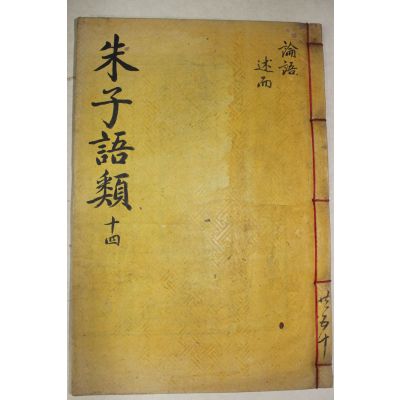 朱子語類 十四
論語
述而
共五十